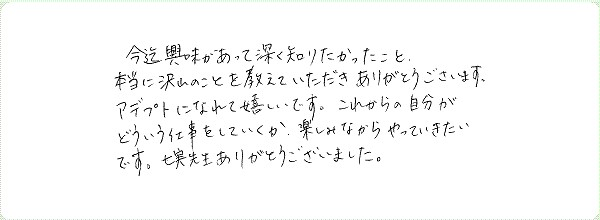 今迄興味があって深く知りたかったこと、
本当に沢山のことを教えていただきありがとうございます、
アデプトになれて嬉しいです。これからの自分が
どういう仕事をしていくか、楽しみながらやっていきたい
です。七実先生ありがとうございました。